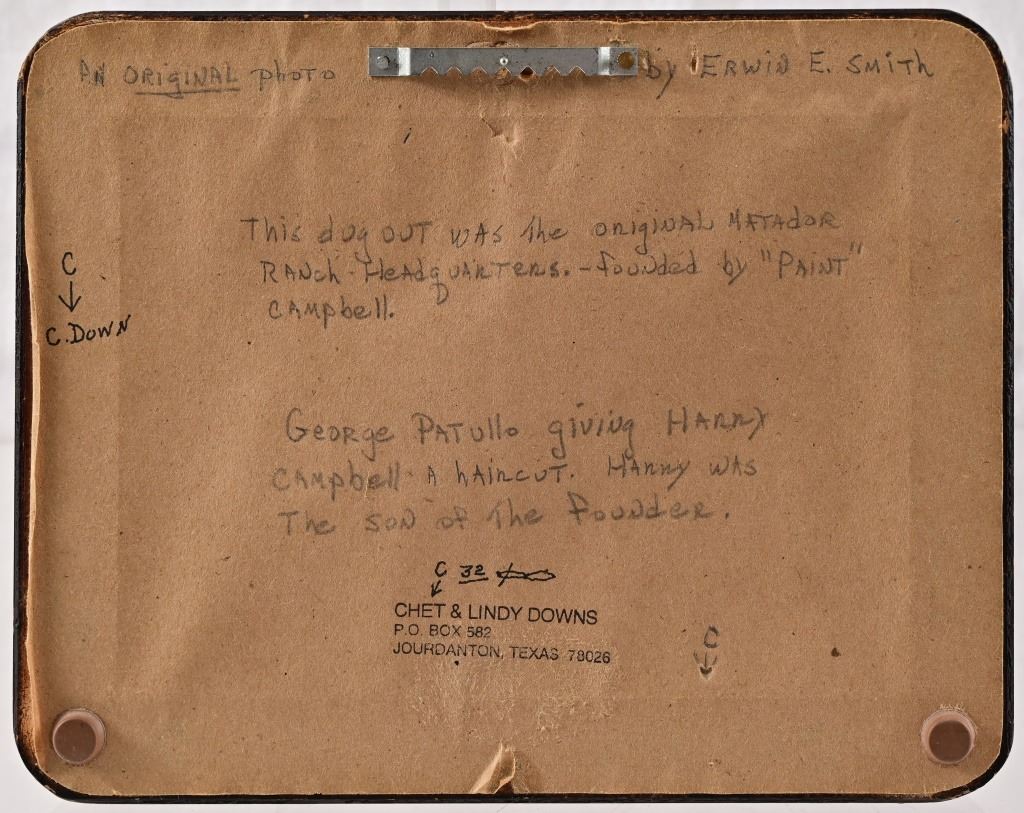 AN ORIGINAL photo by ERWIN E. SMITH
This dug OUT WAS the ORIGINAL MATADOR
RANch HeAdQUARTERS. - founded by "PAINT"
CAMpbell.
C
↓
C. DOWN
GeoRge PATUllo giving HARRY
CAMpbell A hAIRCUT. HARRY WAS
The SON of The FOUNDER.
C 32
↓
CHET & LINDY DOWNS
P.O. BOX 582
JOURDANTON, TEXAS 78026
C
↓